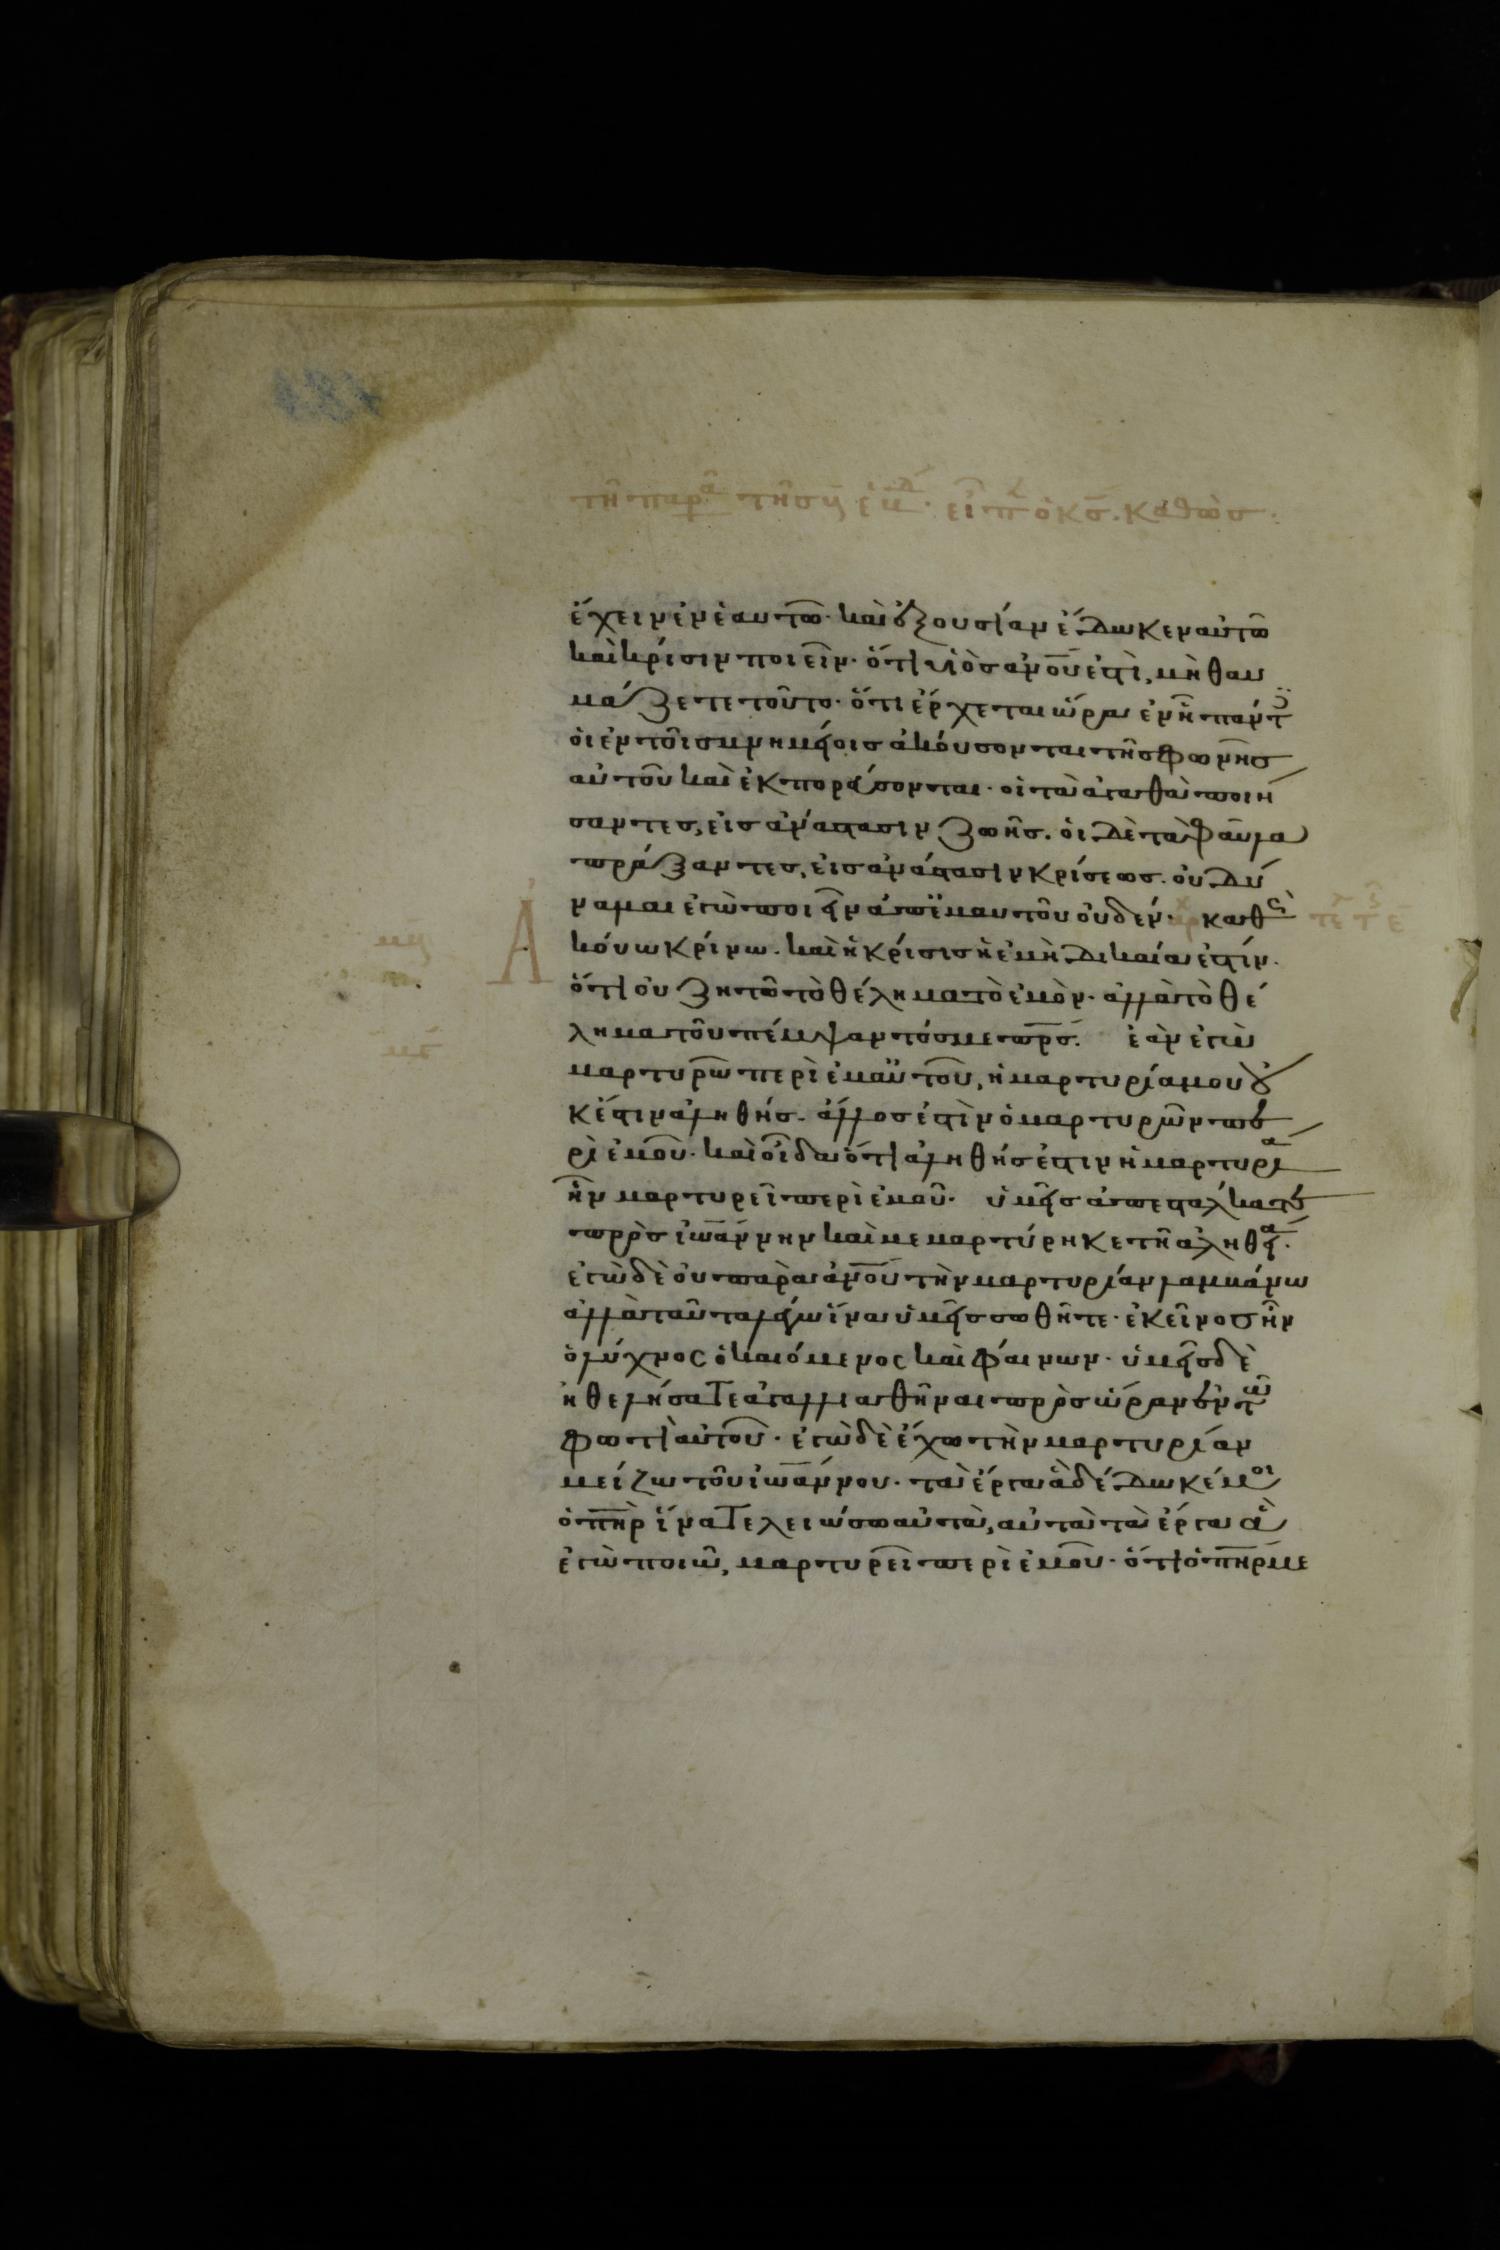 τῆ παρα τῆς εἶπεν ὁ κς. καθὼς.
ἔχειν ἐν ἑαυτῶ· καὶ ἐξουσίαν ἔδωκεν αὐτῶ
καὶ κρίσιν ποιεῖν· ὅτι υἱὸς ἀνου ἐστὶ, μὴ θαυ
μάζετε τοῦτο· ὅτι ἔρχεται ὥρα ἐν ἧ πάντ
οἱ ἐν τοῖς μνημείοις ἀκούσονται τῆς φωνῆς
αὐτοῦ καὶ ἐκπορεύσονται· οἱ τὰ ἀγαθὰ ποιή
σαντες, εἰς ἀνάστασιν ζωῆς. οἱ δὲ τὰ φαῦλα
πράξαντες, εἰς ἀνάστασιν κρίσεως. οὐ δύ
ναμαι ἐγὼ ποιεῖν ἀπ' ἐμαυτοῦ οὐδέν· αρχ καθὼς
Ἀκούω κρίνω. καὶ ἡ κρίσις ἡ ἐμὴ δικαία ἐστίν.
ὅτι οὐ ζητῶ τὸ θέλημα τὸ ἐμὸν· ἀλλὰ τὸ θέ
λημα τοῦ πέμψαντός με πρς. ἐὰν ἐγὼ
μαρτυρῶ περὶ ἐμαϋτοῦ, ἡ μαρτυρία μου οὐ
κἔστιν ἀληθής. ἄλλος ἐστὶν ὁ μαρτυρῶν πε
ρὶ ἐμοῦ· καὶ οἶδα ὅτι ἀληθής ἐστιν ἡ μαρτυρία
ἣν μαρτυρεῖ περὶ ἐμοῦ. ὑμεῖς ἀπεστάλκατε
πρὸς ἰωάννην καὶ μεμαρτύρηκε τῆ ἀληθεία.
ἐγὼ δὲ οὐ παρὰ ἀνου τὴν μαρτυρίαν λαμβάνω
ἀλλὰ ταῦτα λέγω ἵνα ὑμεῖς σωθῆτε· ἐκεῖνος ἦν
ὁ λύχνος ὁ καιόμενος καὶ φαίνων· ὑμεῖς δὲ
ἠθελήσατε ἀγαλλιαθῆναι πρὸς ὥραν ἐν τῶ
φωτὶ αὐτοῦ· ἐγὼ δὲ ἔχω τὴν μαρτυρίαν
μείζω τοῦ ἰωάννου· τὰ ἔργα ἃ δέδωκέ μοι
ὁ πηρ ἵνα τελειώσω αὐτὰ, αὐτὰ τὰ ἔργα ἃ
ἐγὼ ποιῶ, μαρτυρεῖ περὶ ἐμοῦ· ὅτι ὁ πηρ με